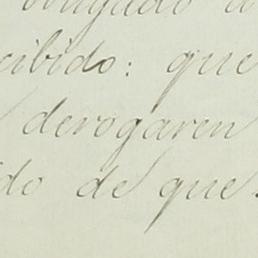 obligado a
cibido: que
derogaren
do de que